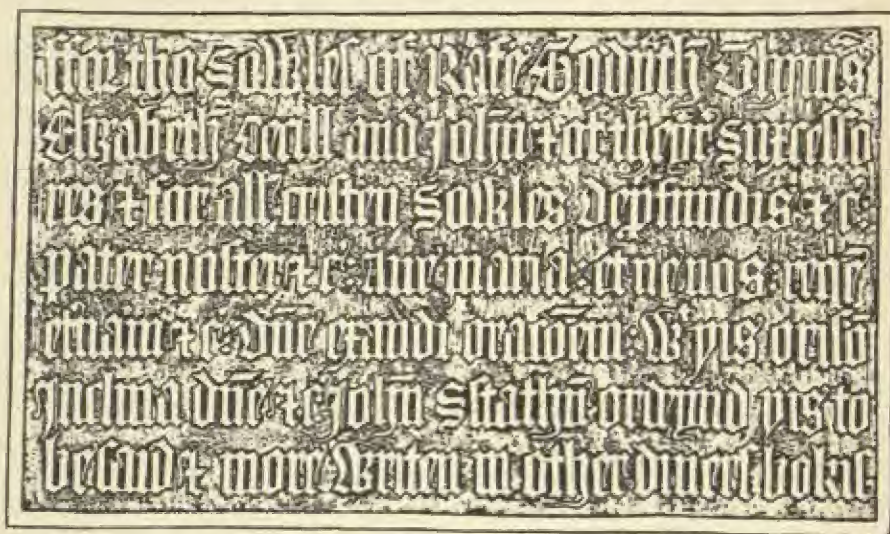 ffor tho Sowles of Rafe. Godyth. Thoms̄
Elizabeth. Cecill and John̄ & of theyr successo
res & for all cristen Sowles depfundis & c̄.
pater noster & c̄. Aue maria. et ne nos: req̄e
et̄nam & c̄: dn̄e exaudi oracōem: Wt yis orisō
Inclina dn̄e &c̄ John̄ Stathū ordeynd yis to
be said & more Writen in other diuers bokis